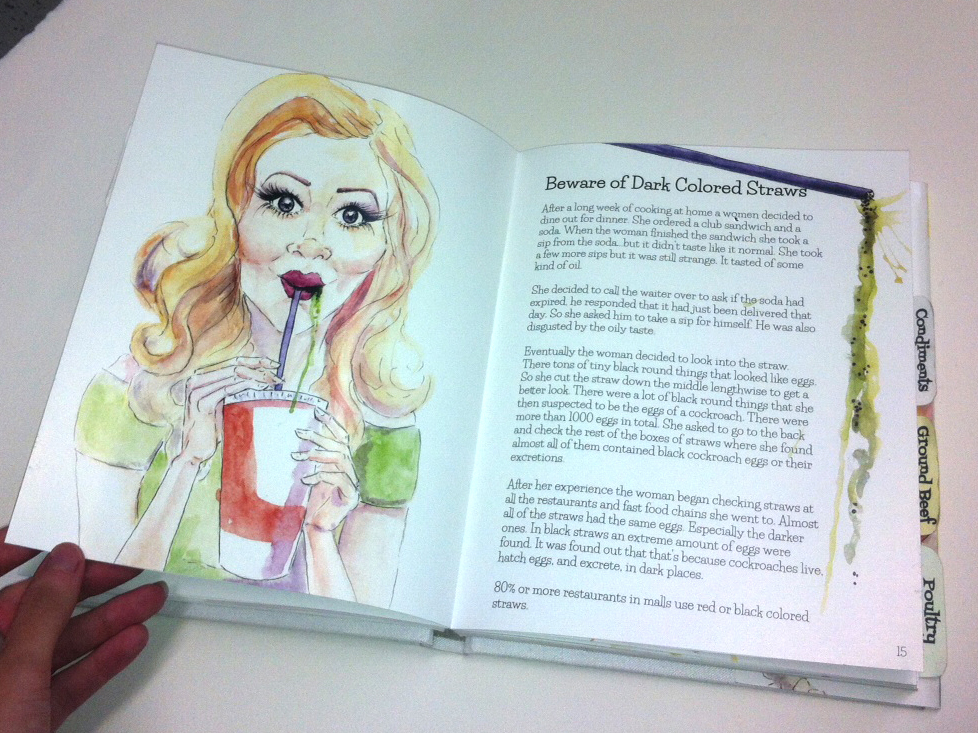 Beware of Dark Colored Straws
After a long week of cooking at home a women decided to
dine out for dinner. She ordered a club sandwich and a
soda. When the woman finished the sandwich she took a
sip from the soda...but it didn't taste like it normal. She took
a few more sips but it was still strange. It tasted of some
kind of oil.
She decided to call the waiter over to ask if the soda had
expired, he responded that it had just been delivered that
day. So she asked him to take a sip for himself. He was also
disgusted by the oily taste.
Eventually the woman decided to look into the straw.
There tons of tiny black round things that looked like eggs.
So she cut the straw down the middle lengthwise to get a
better look. There were a lot of black round things that she
then suspected to be the eggs of a cockroach. There were
more than 1000 eggs in total. She asked to go to the back
and check the rest of the boxes of straws where she found
almost all of them contained black cockroach eggs or their
excretions.
After her experience the woman began checking straws at
all the restaurants and fast food chains she went to. Almost
all of the straws had the same eggs. Especially the darker
ones. In black straws an extreme amount of eggs were
found. It was found out that that's because cockroaches live,
hatch eggs, and excrete, in dark places.
80% or more restaurants in malls use red or black colored
straws.
15
Condiments
Ground Beef
Poultry